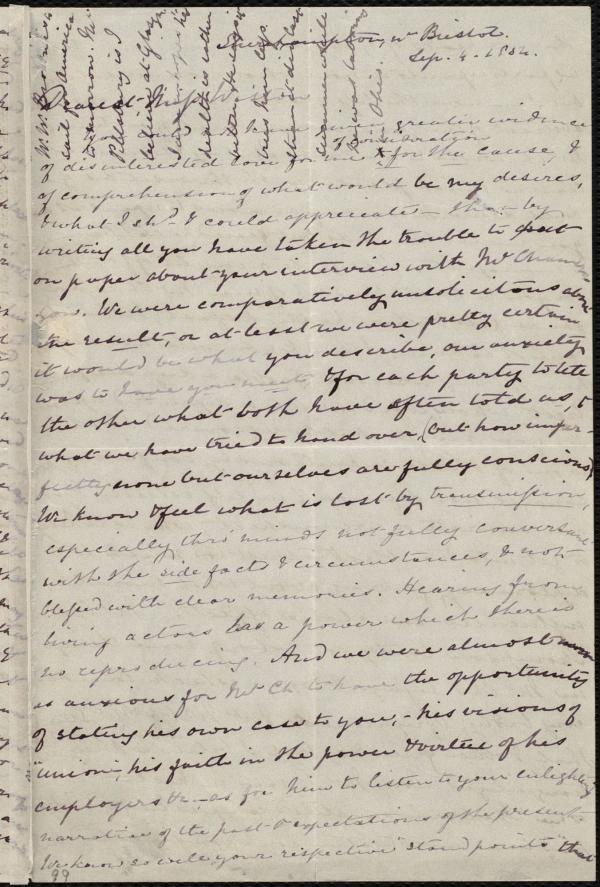 nr Bristol.
Sep. 4. 1854.
Dearest
greater evidence
of consideration
of disinterested love for me & for the cause, &
of comprehension of what would be my desires,
& what I shd. & could appreciate – than by
writing all you have taken the trouble to put
on paper about your interview with Mr
We were comparatively unsolicitous about
the result, or at least we were pretty certain
it would be what you describe, our anxiety
was to have you meet, & for each party to tell
the other what both have often told us, &
what we have tried to hand over, (but how imper-
fectly none but ourselves are fully conscious)
We know & feel what is lost by transmission,
especially thro' minds not fully conversant
with the side facts & circumstances, & not
blessed with clear memories. Hearing from
living actors has a power which there is
no reproducing. And we were almost
as anxious for Mr Ch. to have the opportunity
of stating his own case to you, – his visions of
"union", his faith in the power & virtue of his
employers &c – as for him to listen to your enlightg
narrative of the past & expectations of the present.
We know so well your respective "stand points" that
99
sail for America
tomorrow. Mr
Pillsbury is I
believe at Glasgow
health is rather
better